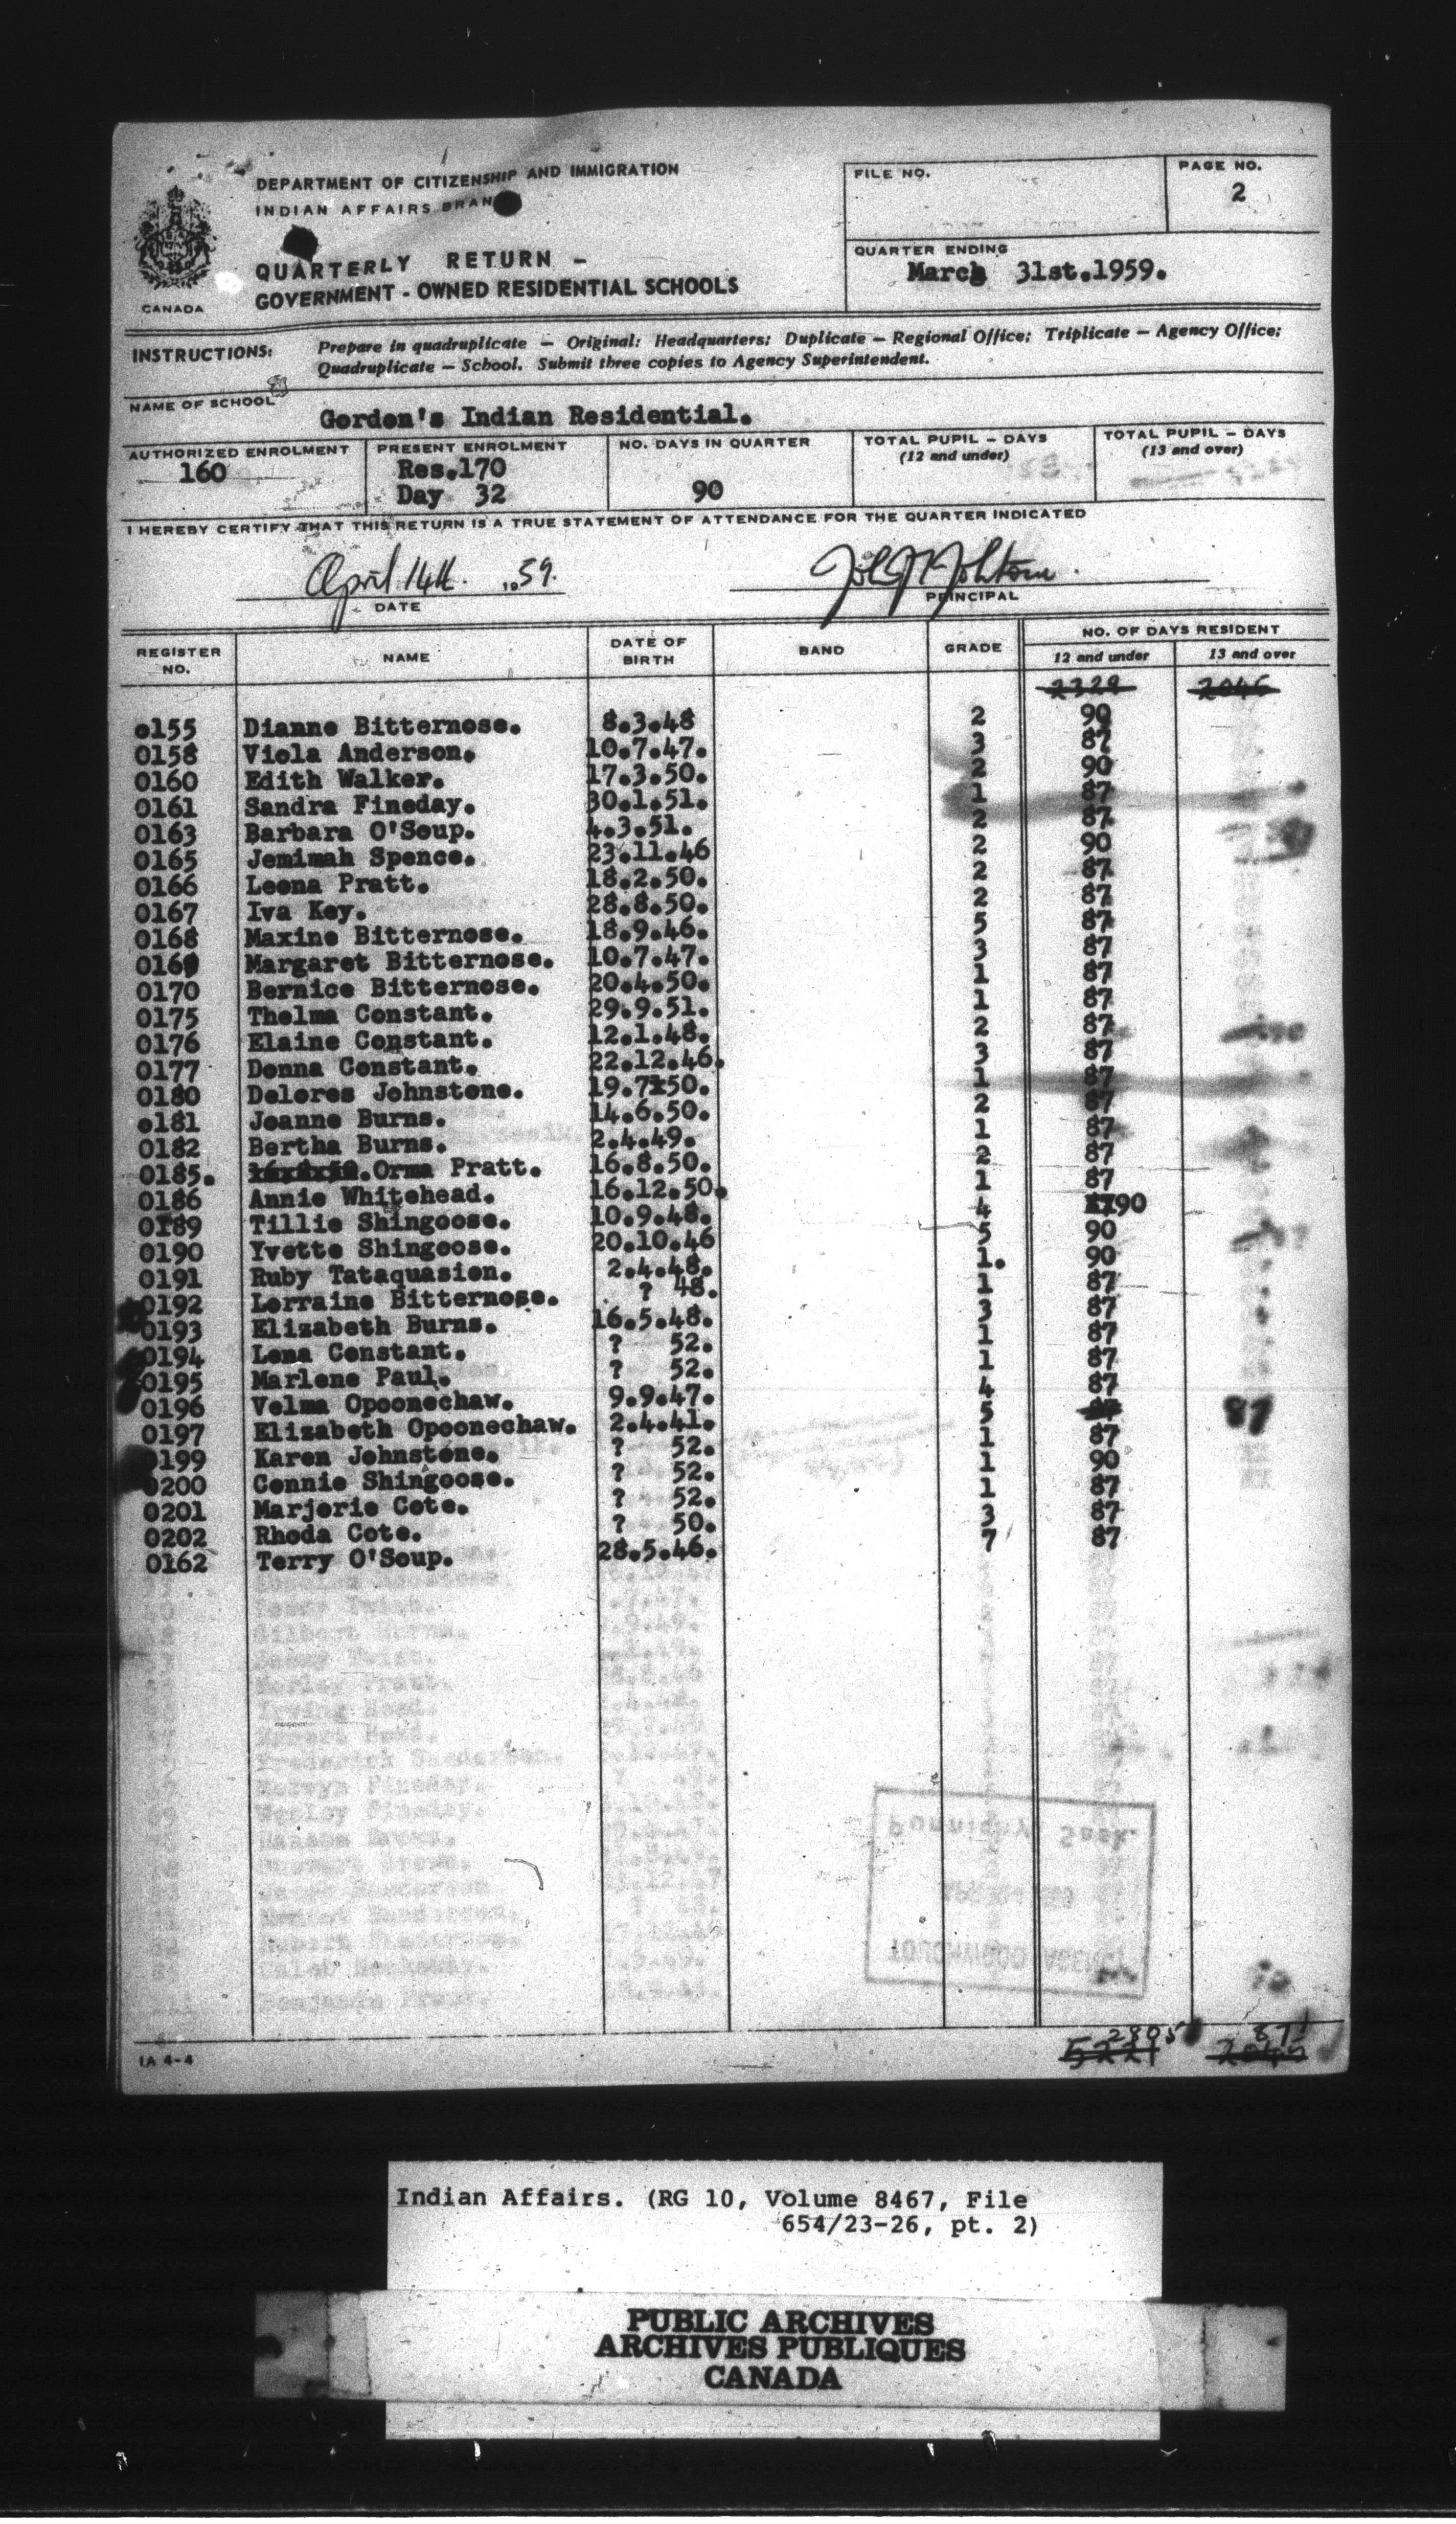 DEPARTMENT OF CITIZENSHIP AND IMMIGRATION
INDIAN AFFAIRS BRAN
QUARTERLY RETURN -
GOVERNMENT - OWNED RESIDENTIAL SCHOOLS
CANADA
FILE NO.
PAGE NO.
2
QUARTER ENDING
March 31st.1959.
INSTRUCTIONS: Prepare in quadruplicate — Original: Headquarters; Duplicate — Regional Office; Triplicate — Agency Office;
Quadruplicate — School. Submit three copies to Agency Superintendent.
NAME OF SCHOOL
Gordon's Indian Residential.
AUTHORIZED ENROLMENT
160
PRESENT ENROLMENT
Res.170
Day 32
NO. DAYS IN QUARTER
90
TOTAL PUPIL - DAYS
(12 and under)
TOTAL PUPIL - DAYS
(13 and over)
I HEREBY CERTIFY THAT THIS RETURN IS A TRUE STATEMENT OF ATTENDANCE FOR THE QUARTER INDICATED
April 14th. 1959.
DATE
PRINCIPAL
REGISTER NO. NAME DATE OF BIRTH BAND GRADE NO. OF DAYS RESIDENT
12 and under 13 and over
2329 2046
0155 Dianne Bitternose. 8.3.48 2 90
0158 Viola Anderson. 10.7.47. 3 87
0160 Edith Walker. 17.3.50. 2 90
0161 Sandra Fineday. 30.1.51. 1 87
0163 Barbara O'Soup. 4.3.51. 2 87
0165 Jemimah Spence. 23.11.46 2 90
0166 Leona Pratt. 18.2.50. 2 87
0167 Iva Key. 28.8.50. 2 87
0168 Maxine Bitternose. 18.9.46. 5 87
0169 Margaret Bitternose. 10.7.47. 3 87
0170 Bernice Bitternose. 20.4.50. 1 87
0175 Thelma Constant. 29.9.51. 1 87
0176 Elaine Constant. 12.1.48. 2 87
0177 Donna Constant. 22.12.46. 3 87
0180 Delores Johnstone. 19.7x50. 1 87
0181 Joanne Burns. 14.6.50. 2 87
0182 Bertha Burns. 2.4.49. 1 87
0185. .Orma Pratt. 16.8.50. 2 87
0186 Annie Whitehead. 16.12.50. 1 87
0189 Tillie Shingoose. 10.9.48. 4 90
0190 Yvette Shingoose. 20.10.46 5 90
0191 Ruby Tataquasion. 2.4.48. 1. 90
0192 Lorraine Bitternose. ? 48. 1 87
0193 Elizabeth Burns. 16.5.48. 3 87
0194 Lena Constant. ? 52. 1 87
0195 Marlene Paul. ? 52. 1 87
0196 Velma Opoonechaw. 9.9.47. 4 87
0197 Elizabeth Opoonechaw. 2.4.41. 5 87 87
0199 Karen Johnstone. ? 52. 1 87
0200 Connie Shingoose. ? 52. 1 90
0201 Marjorie Cote. ? 52. 1 87
0202 Rhoda Cote. ? 50. 3 87
0162 Terry O'Soup. 28.5.46. 7 87
2805 87
5221 2046
IA 4-4
Indian Affairs. (RG 10, Volume 8467, File
654/23-26, pt. 2)
PUBLIC ARCHIVES
ARCHIVES PUBLIQUES
CANADA